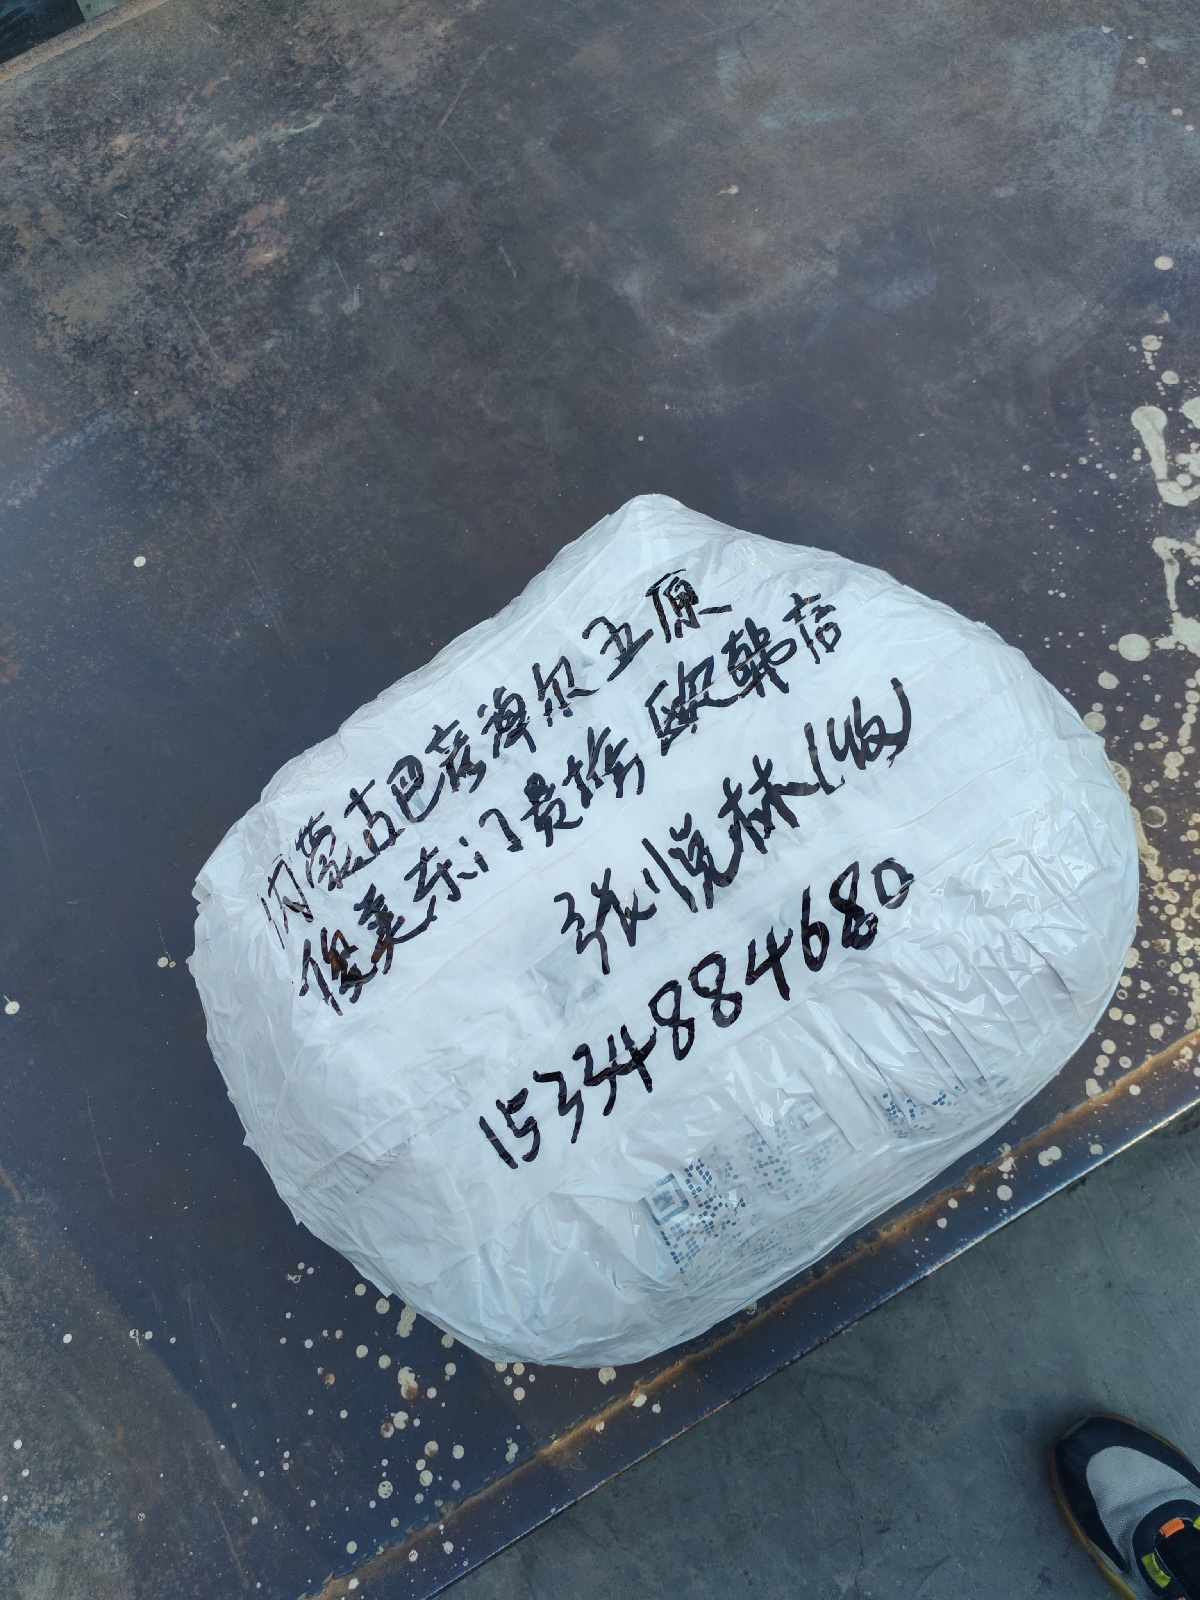 内蒙古巴彦淖尔五原
俊美东门贵掿欧韩店
张悦林(收)
15334884680